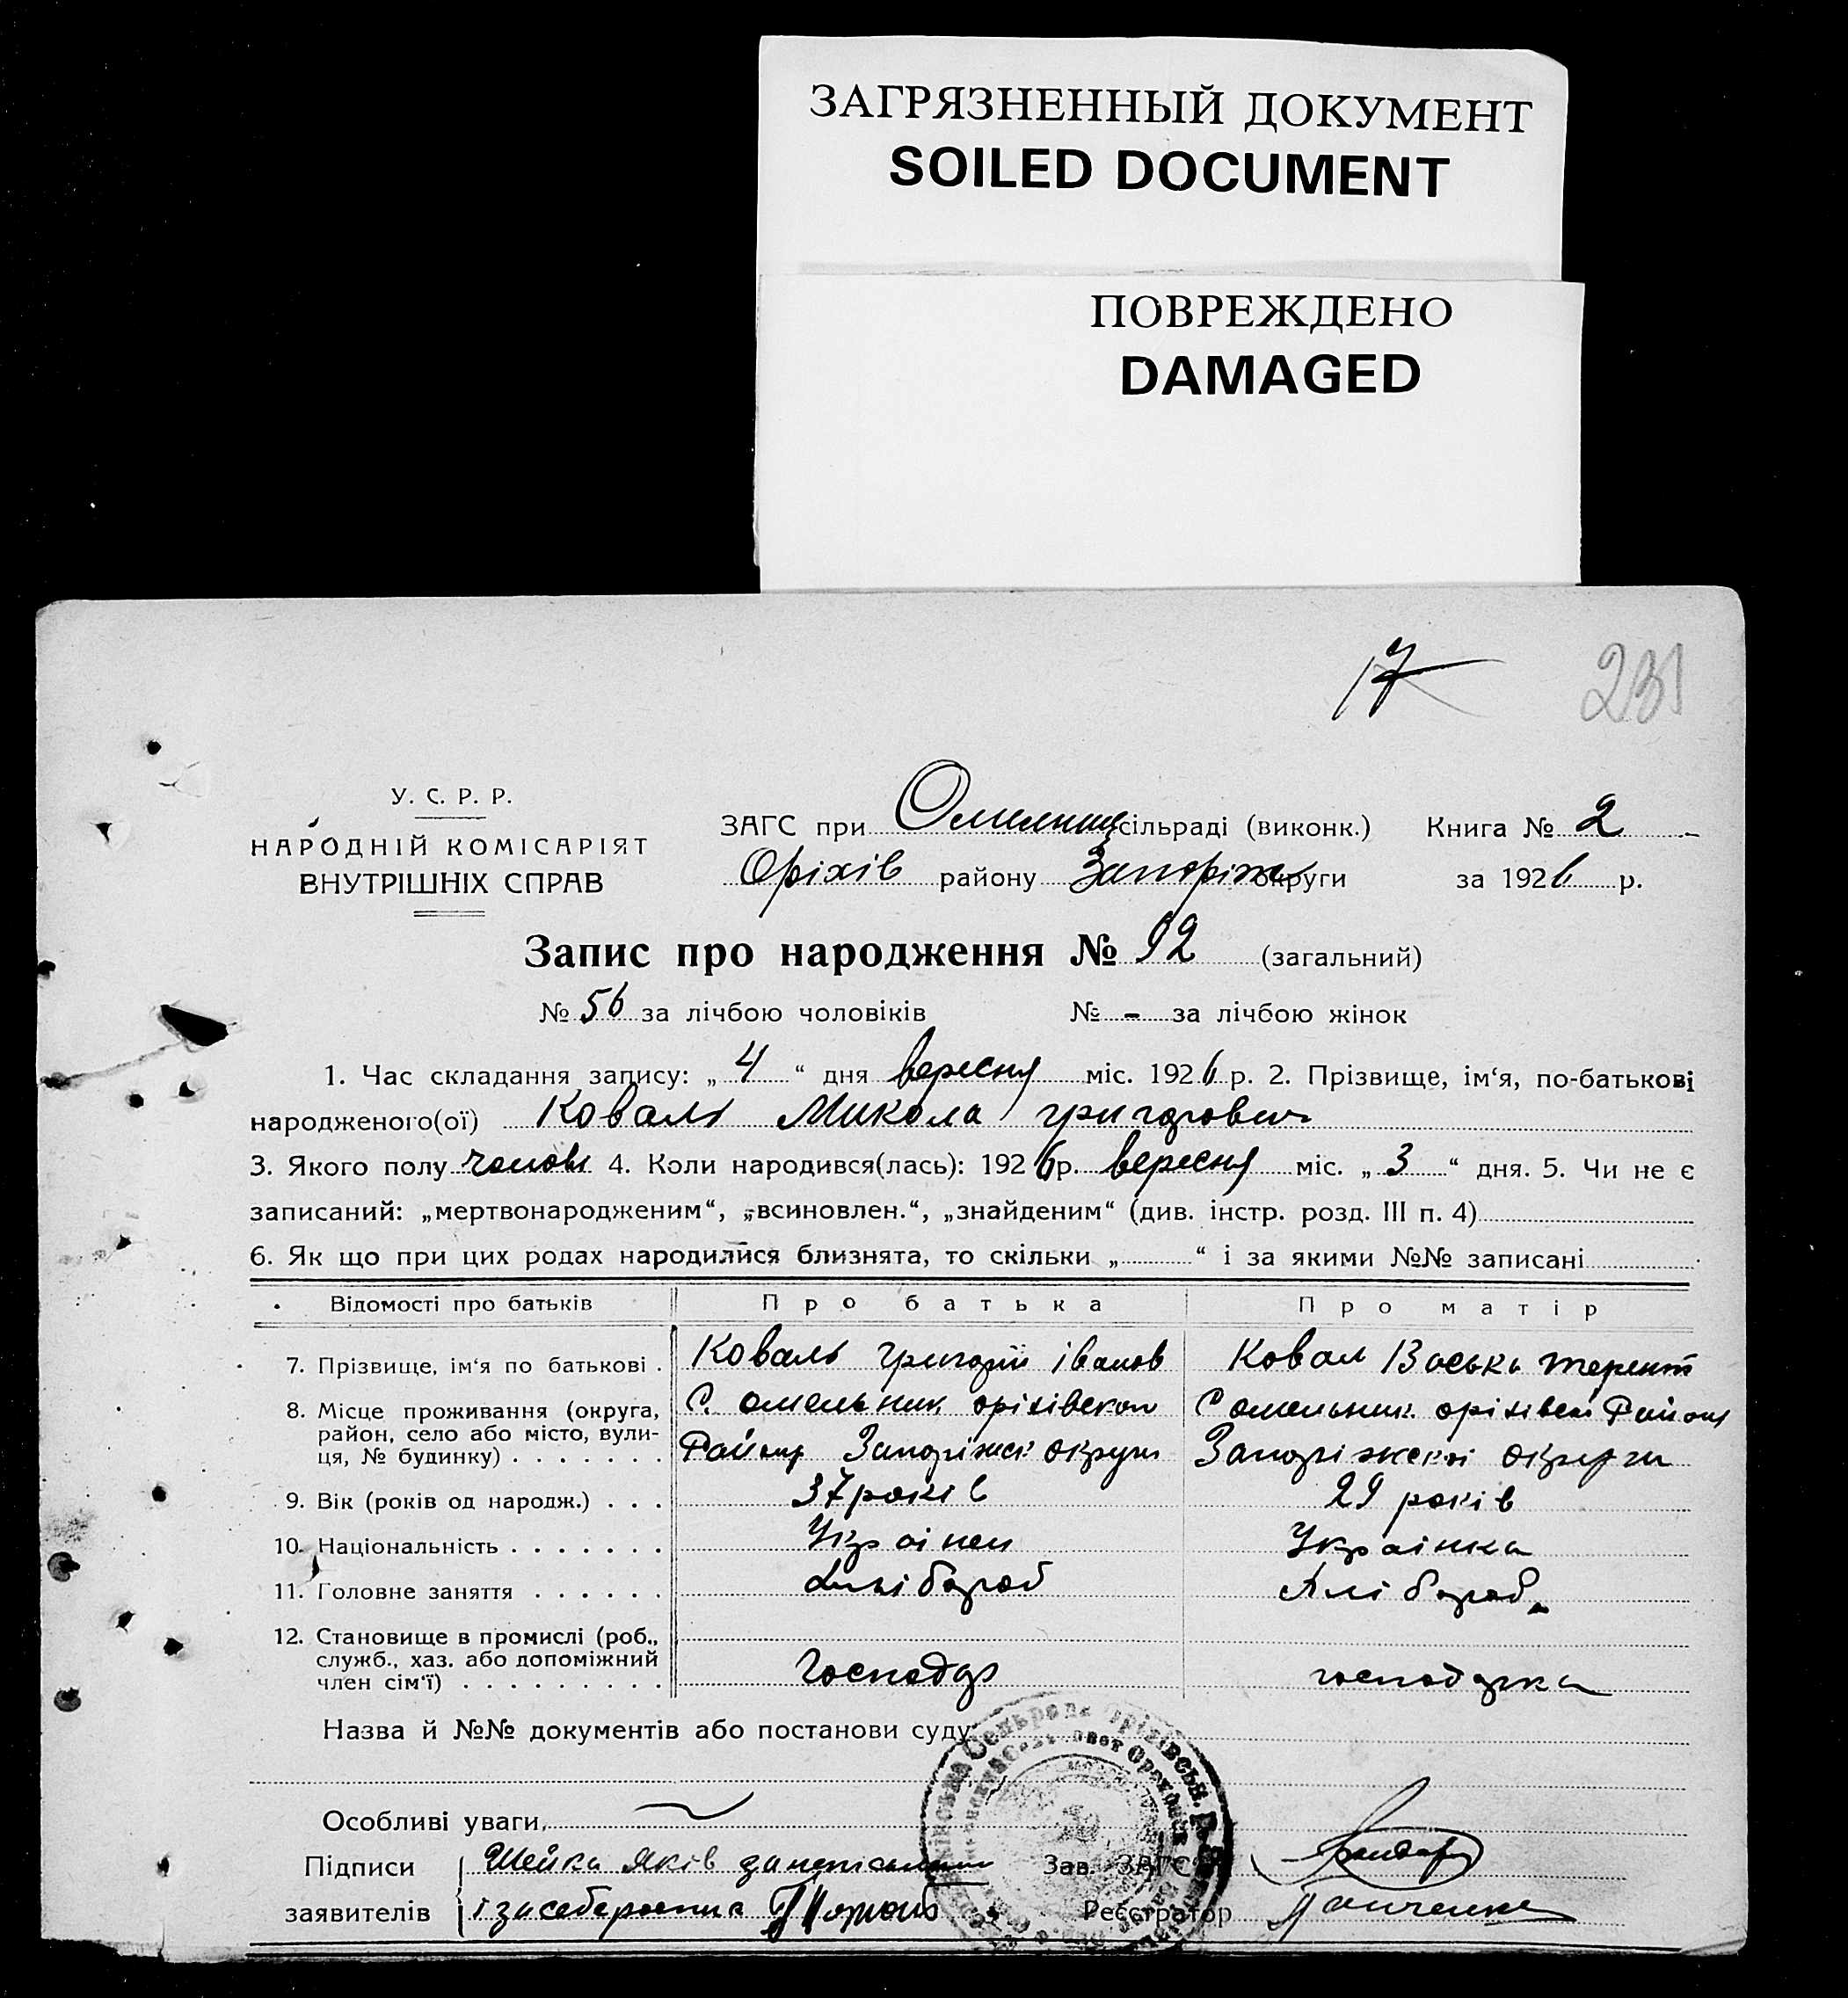 ЗАГРЯЗНЕННЫЙ ДОКУМЕНТ
SOILED DOCUMENT
ПОВРЕЖДЕНО
DAMAGED
17 231
У. С. Р. Р.
НАРОДНІЙ КОМІСАРІЯТ
ВНУТРІШНІХ СПРАВ
ЗАГС при сільраді (виконк.) Книга № 2
Оріхів району Запоріж округи за 1926 р.
Запис про народження № 92 (загальний)
№ 56 за лічбою чоловіків № - за лічбою жінок
1. Час складання запису: „ 4 “ дня вересня міс. 1926 р. 2. Прізвище, ім‘я, по-батькові
народженого(ої) Коваль Микола григорович
3. Якого полу чолов 4. Коли народився(лась): 1926 р. вересня міс. „ 3 “ дня. 5. Чи не є
записаний: „мертвонародженим“, „всиновлен.“, „знайденим“ (див. інстр. розд. III п. 4)
6. Як що при цих родах народилися близнята, то скільки „ “ і за якими №№ записані
Відомості про батьків Про батька Про матір
7. Прізвище, ім‘я по батькові . Коваль григорій іванов Ковал Васька терент
8. Місце проживання (округа, С. омельник оріхівскои С омельник оріхівскі Району
район, село або місто, вули-
ця, № будинку) . . . . . . . Району Запоріжскі округи Запоріжскої округи
9. Вік (років од народж.) . . . 37 років 29 років
10. Національність . . . . . . . Украінец Украінка
11. Головне заняття . . . . . . хлібороб хлібороб
12. Становище в промислі (роб.,
служб., хаз. або допоміжний
член сім‘ї) . . . . . . . . . Господар господарка
Назва й №№ документів або постанови суду
Особливі уваги
Підписи Шейка Яків Зав. ЗАГС
заявителів Реєстратор Панченко